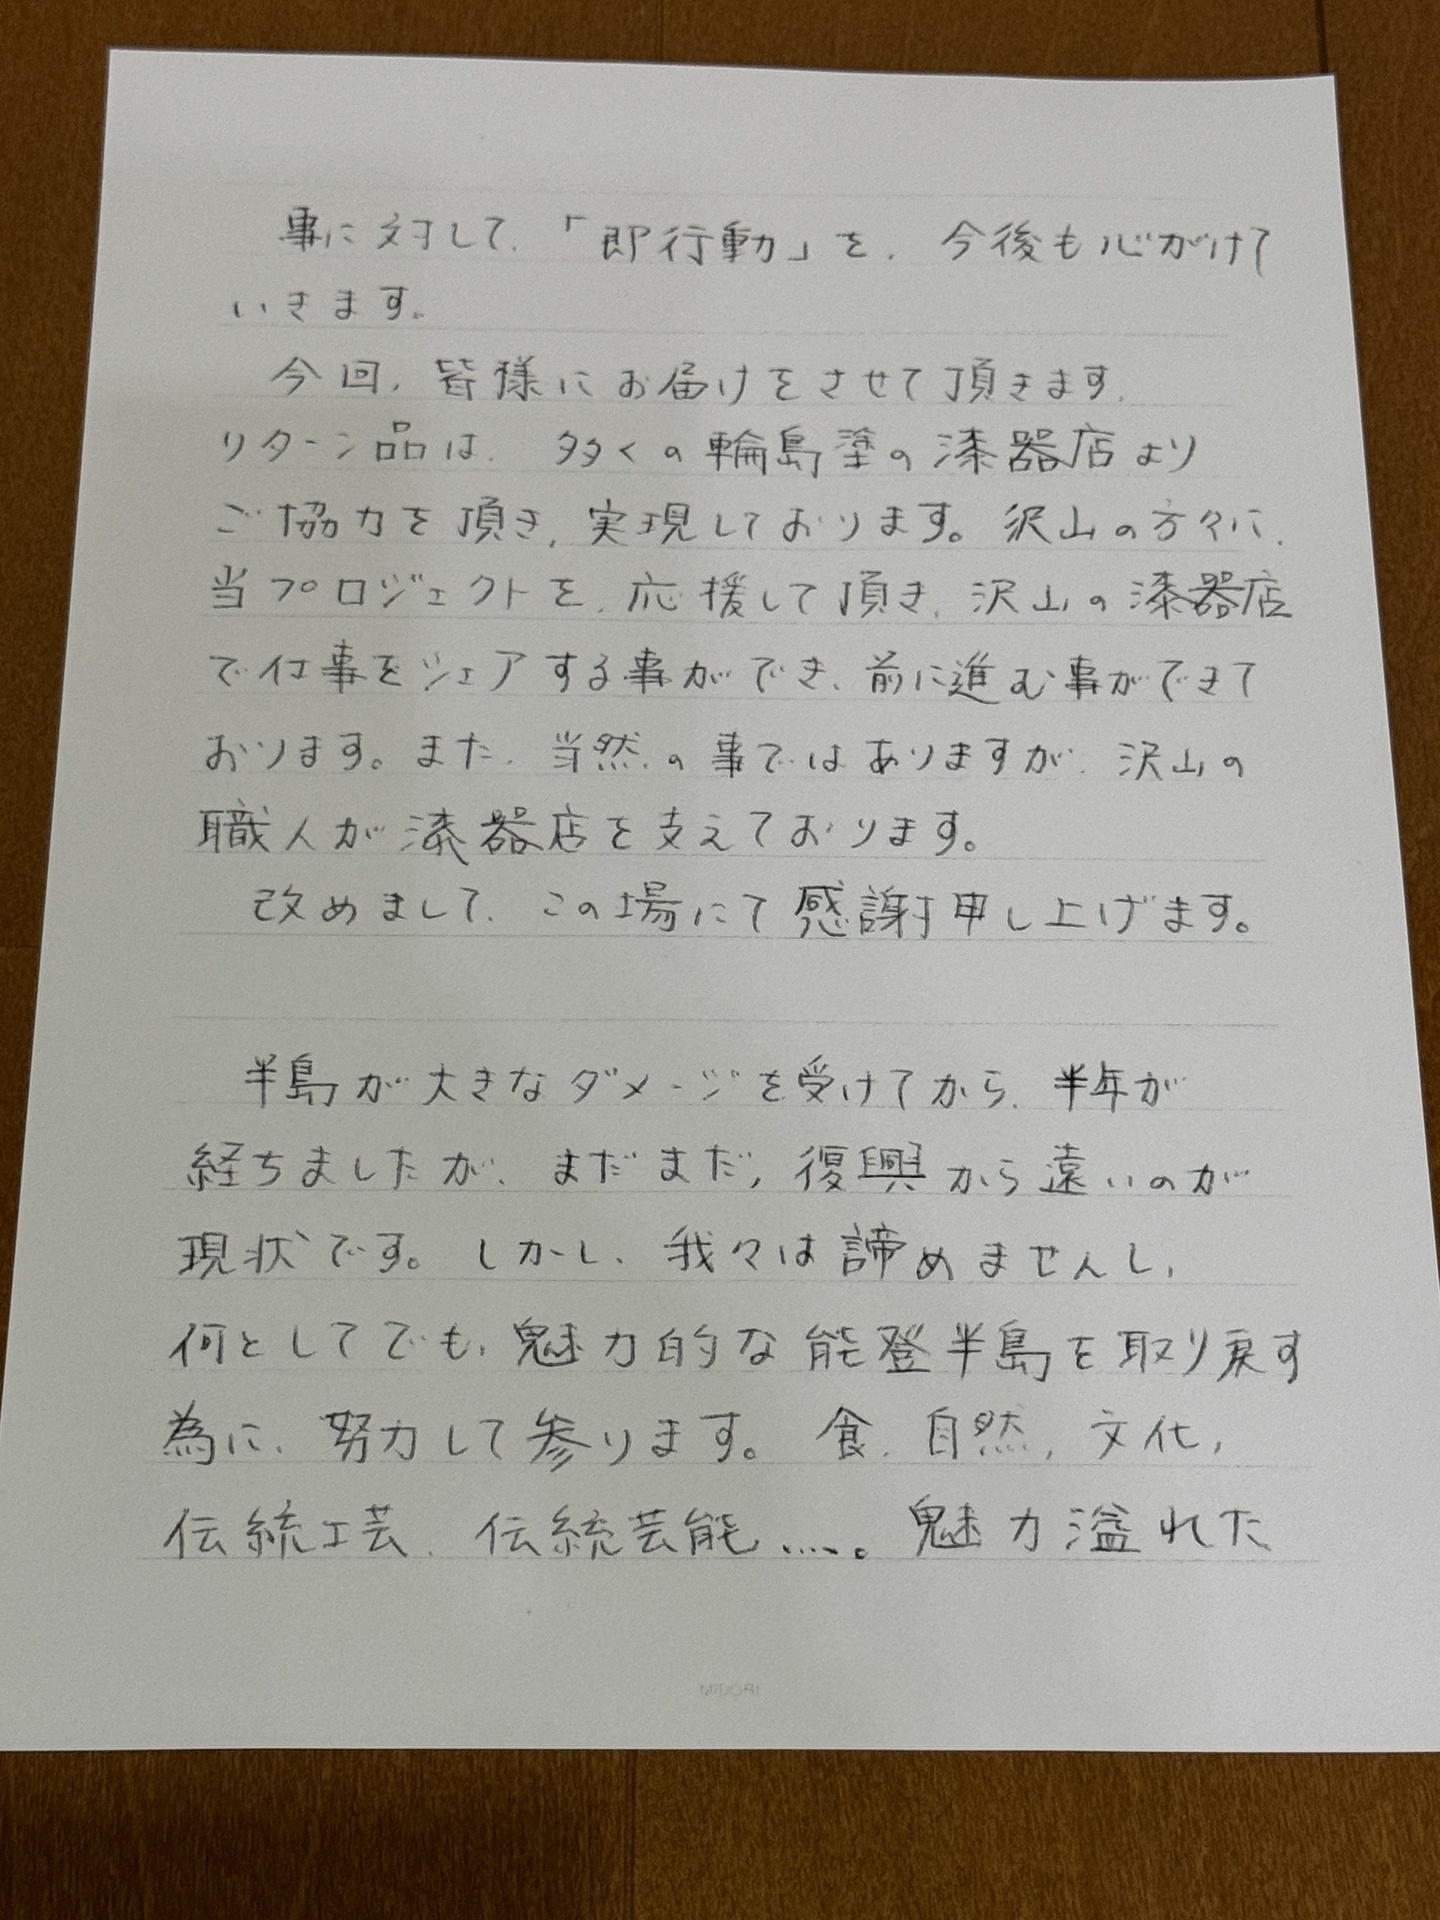 事に対して、「即行動」を、今後も心がけて
いきます。
今回、皆様にお届けをさせて頂きます、
リターン品は、多くの輪島塗の漆器店より
ご協力を頂き、実現しております。沢山の方々に、
当プロジェクトを、応援して頂き、沢山の漆器店
で仕事をシェアする事ができ、前に進む事ができて
おります。また、当然の事ではありますが、沢山の
職人が漆器店を支えております。
改めまして、この場にて感謝申し上げます。
半島が大きなダメージを受けてから、半年が
経ちましたが、まだまだ、復興から遠いのが
現状です。しかし、我々は諦めませんし、
何としてでも、魅力的な能登半島を取り戻す
為に、努力して参ります。食、自然、文化、
伝統工芸、伝統芸能....。魅力溢れた
MIDORI